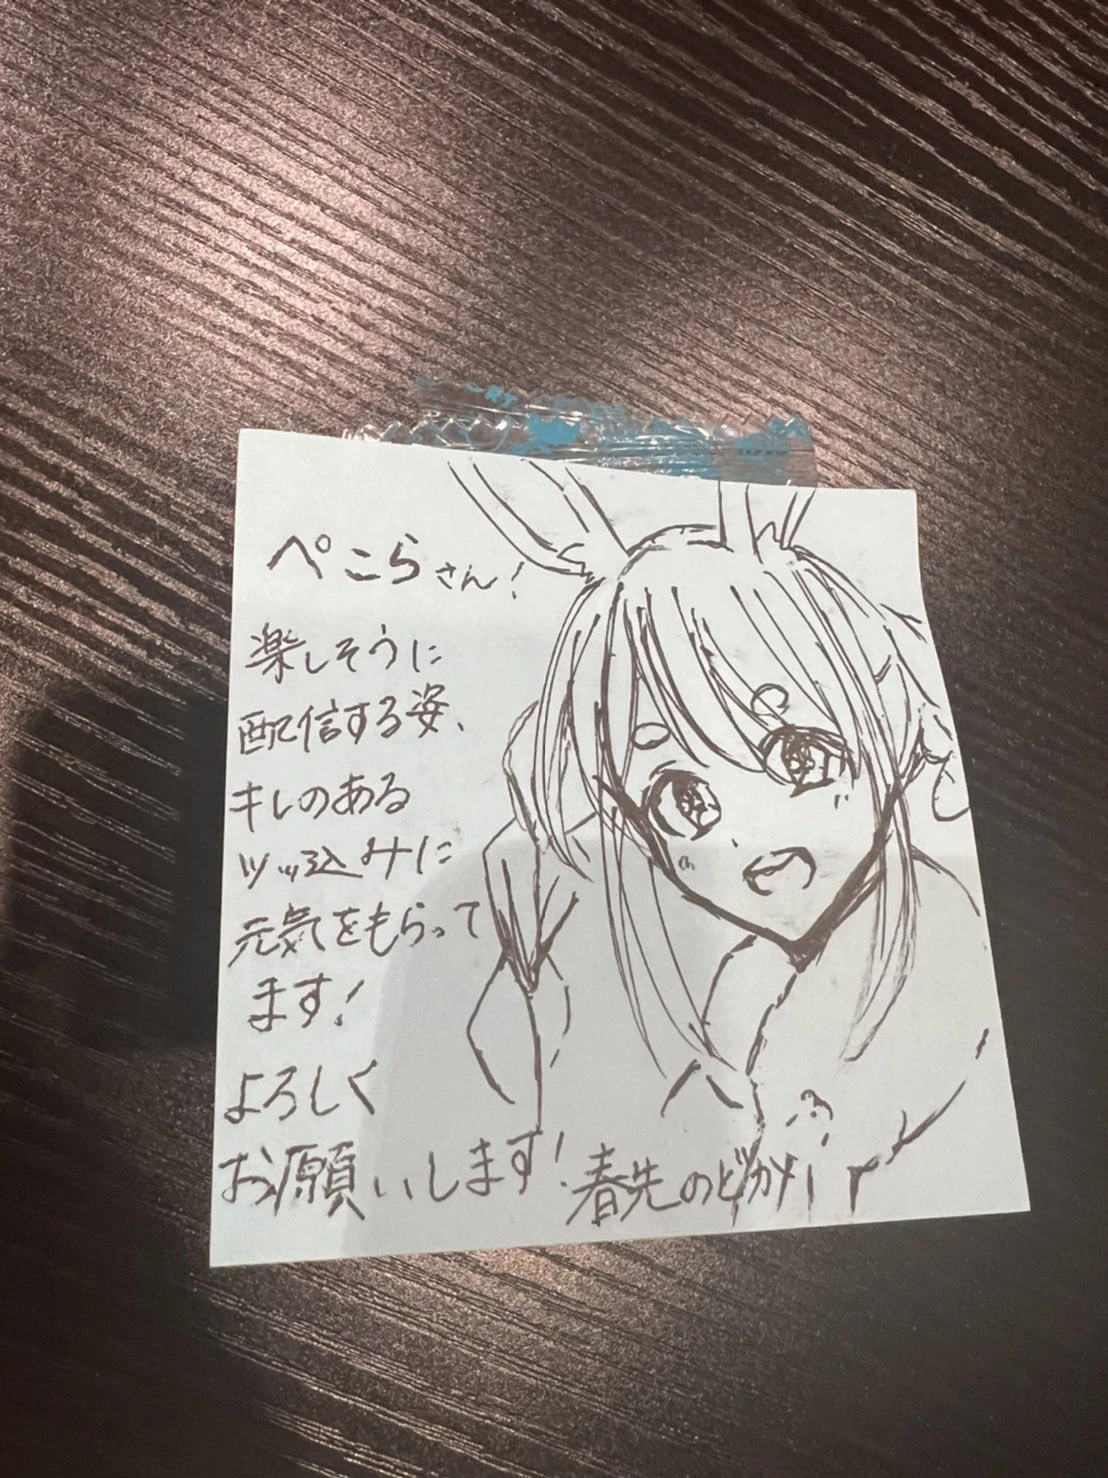 ぺこらさん!
楽しそうに
配信する姿、
キレのある
ツッ込みに
元気をもらって
ます!
よろしく
お願いします!
春先のどか